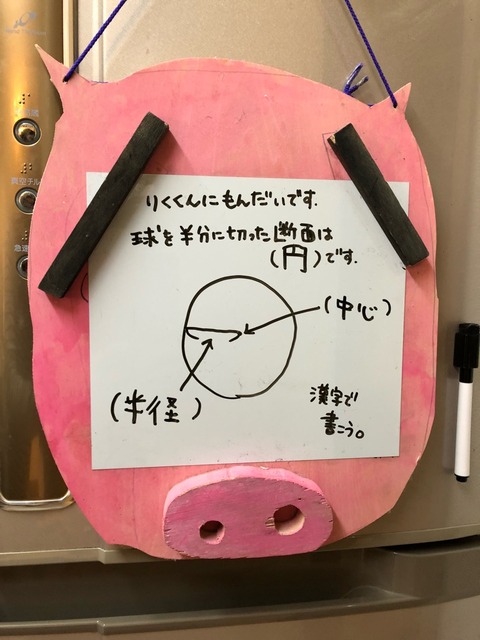 りくくんにもんだいです.
球を半分に切った断面は
(円)です.
(中心)
(半径)
漢字で
書こう。
真空チル